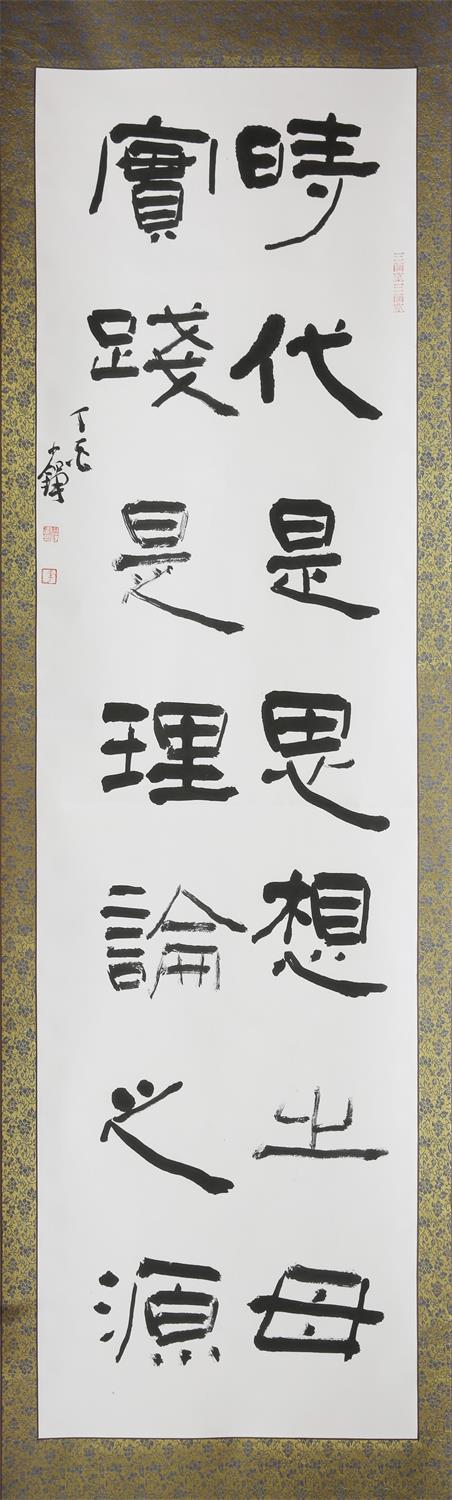 時代是思想之母
實踐是理論之源
丁酉